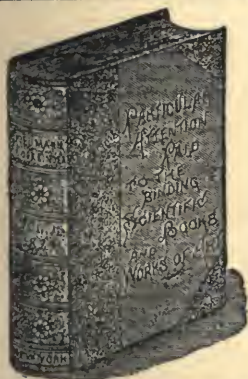 MANN
YORK
PARTICULAR
ATTENTION
PAID
TO THE
BINDING
SCIENTIFIC
BOOKS
AND
WORKS OF ART